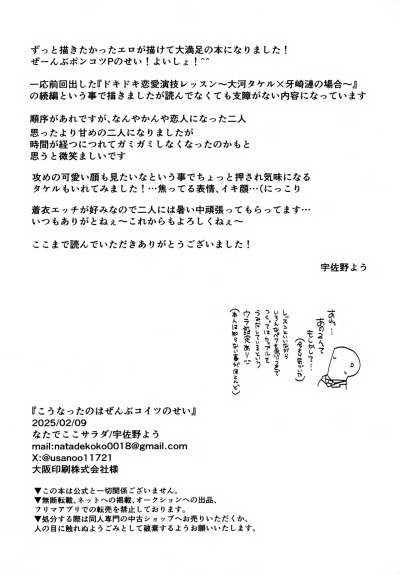 ずっと描きたかったエロが描けて大満足の本になりました！
ぜーんぶポンコツPのせい！よいしょ！^^
一応前回出した『ドキドキ恋愛演技レッスン～大河タケル×牙崎漣の場合～』
の続編という事で描きましたが読んでなくても支障がない内容になっています
順序があれですが、なんやかんや恋人になった二人
思ったより甘めの二人になりましたが
時間が経つにつれてガミガミしなくなったのかもと
思うと微笑ましいです
攻めの可愛い顔も見たいなという事でちょっと押され気味になる
タケルもいれてみました！…焦ってる表情、イキ顔…（にっこり
着衣エッチが好みなので二人には暑い中頑張ってもらってます…
いつもありがとねぇ～これからもよろしくねぇ～
ここまで読んでいただきありがとうございました！
宇佐野よう
あれ…
あの2人って
もしかして…
レッスンといいながら
ウラ設定あり
『こうなったのはぜんぶコイツのせい』
2025/02/09
なたでここサラダ/宇佐野よう
mail:natadekoko0018@gmail.com
X:@usanoo11721
大阪印刷株式会社様
▼この本は公式と一切関係ございません。
▼無断転載、ネットへの掲載、オークションへの出品、
フリマアプリでの転売を禁止しております。
▼処分する際は同人専門の中古ショップへお売りいただくか、
人の目に触れぬようごみとして破棄するようお願いいたします。